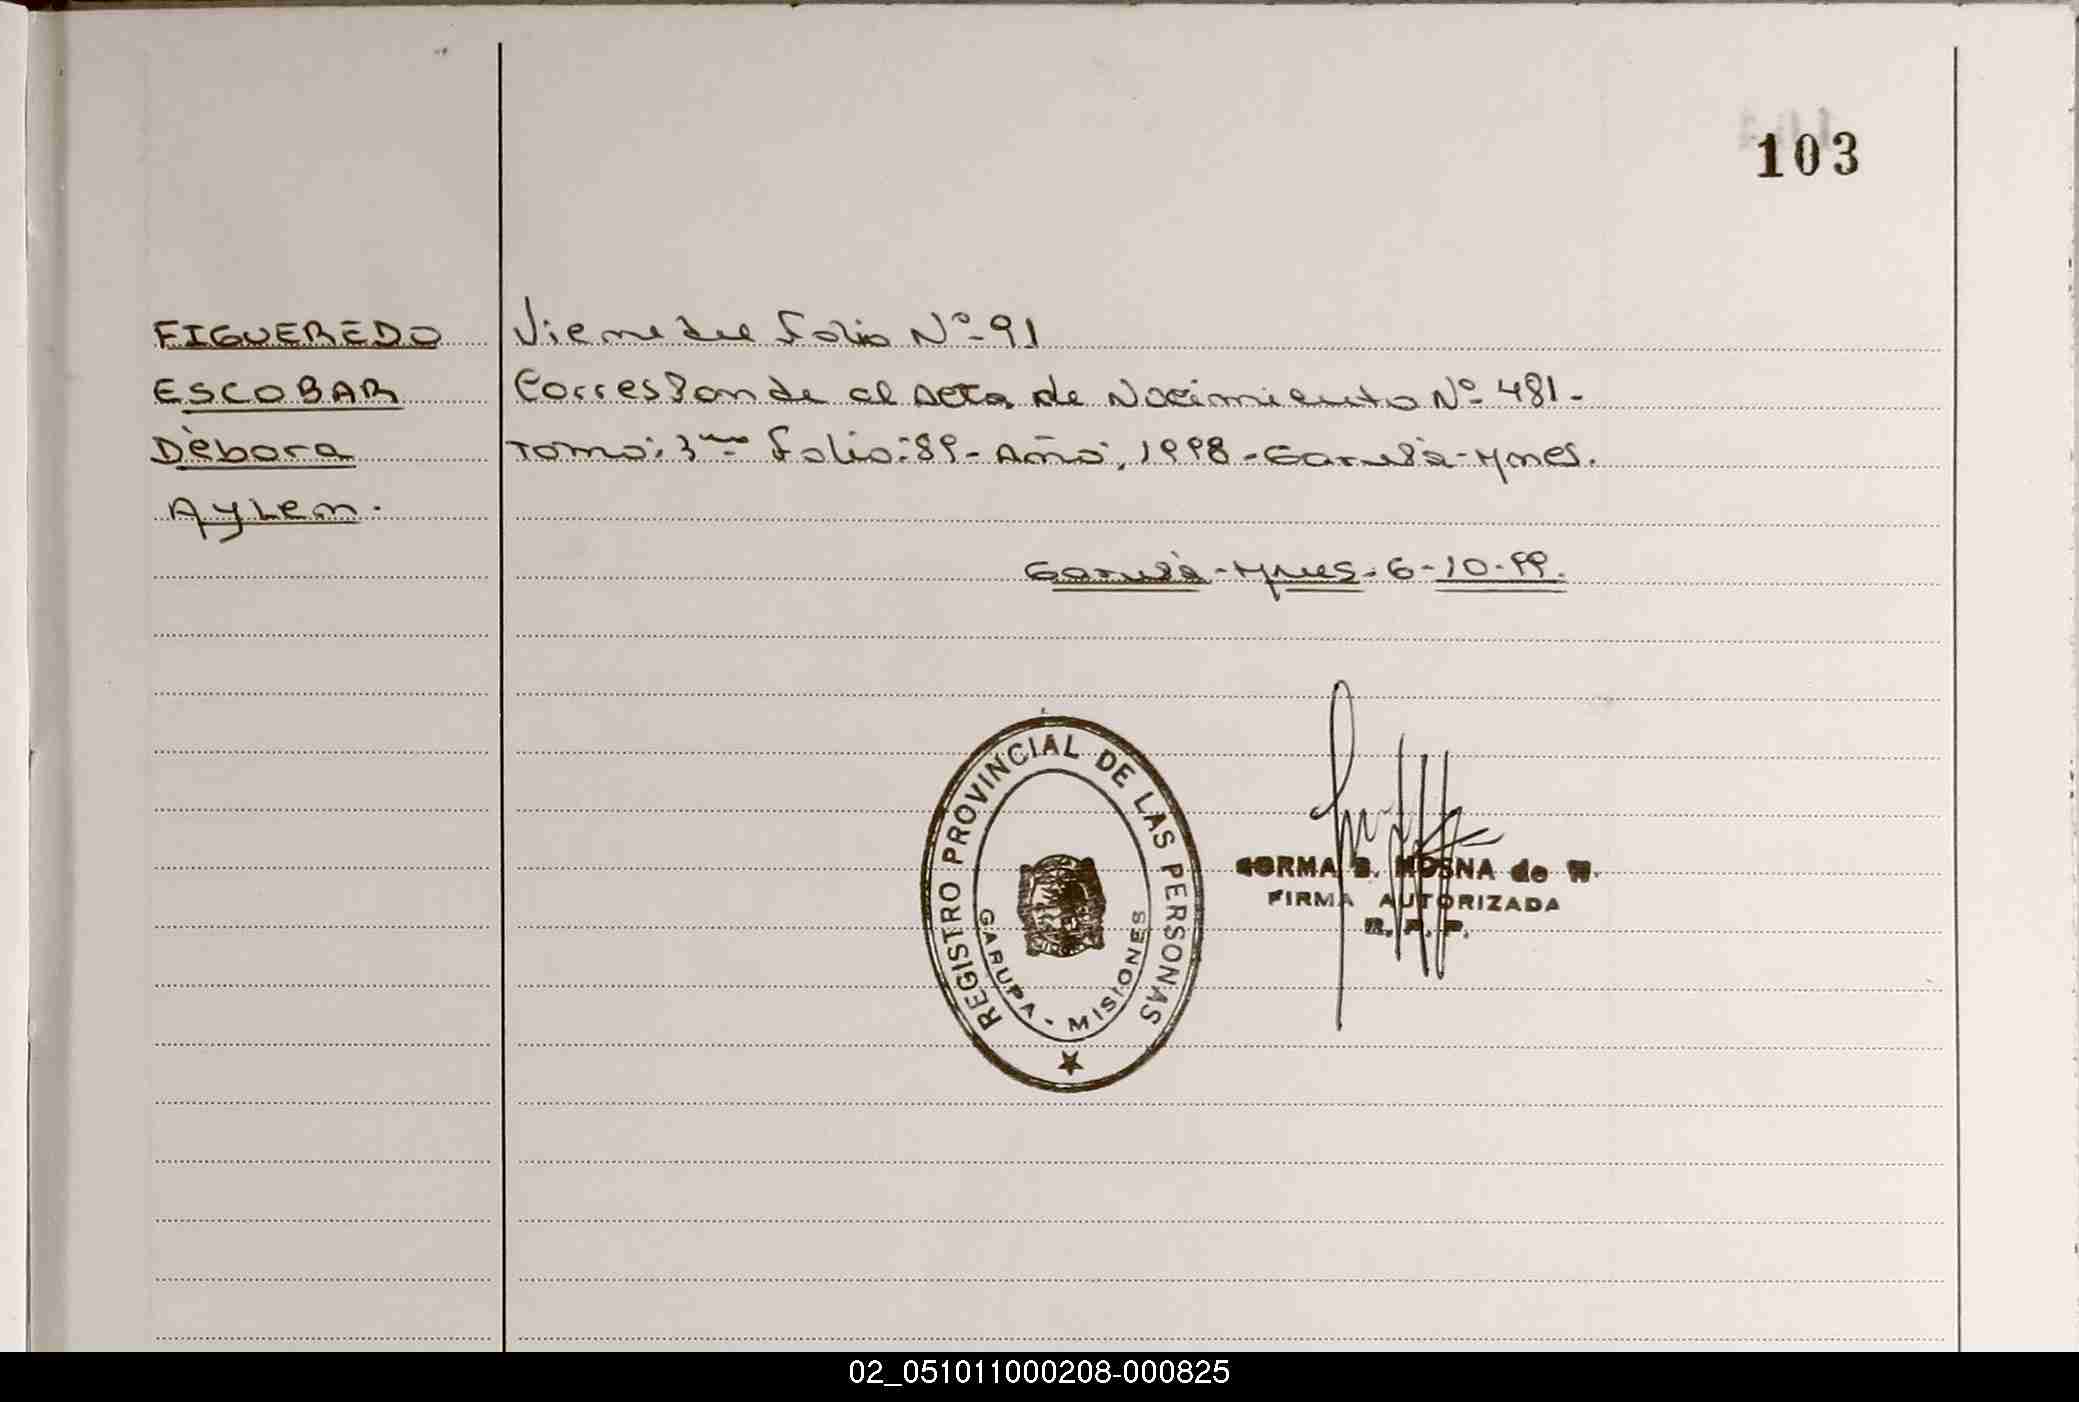 103
FIGUEREDO
ESCOBAR
Dèbora
Aylem.
Viene del Folio Nº-91
Corresponde al Acta de Nacimiento Nº-481-
Tomo: 3ero Folio: 89- Año: 1998-Garupà-Mnes.
Garupà-Mnes. 6-10-99.
REGISTRO PROVINCIAL DE LAS PERSONAS
GARUPA - MISIONES
NORMA B. MOSNA de W.
FIRMA AUTORIZADA
R. P. P.
02_051011000208-000825